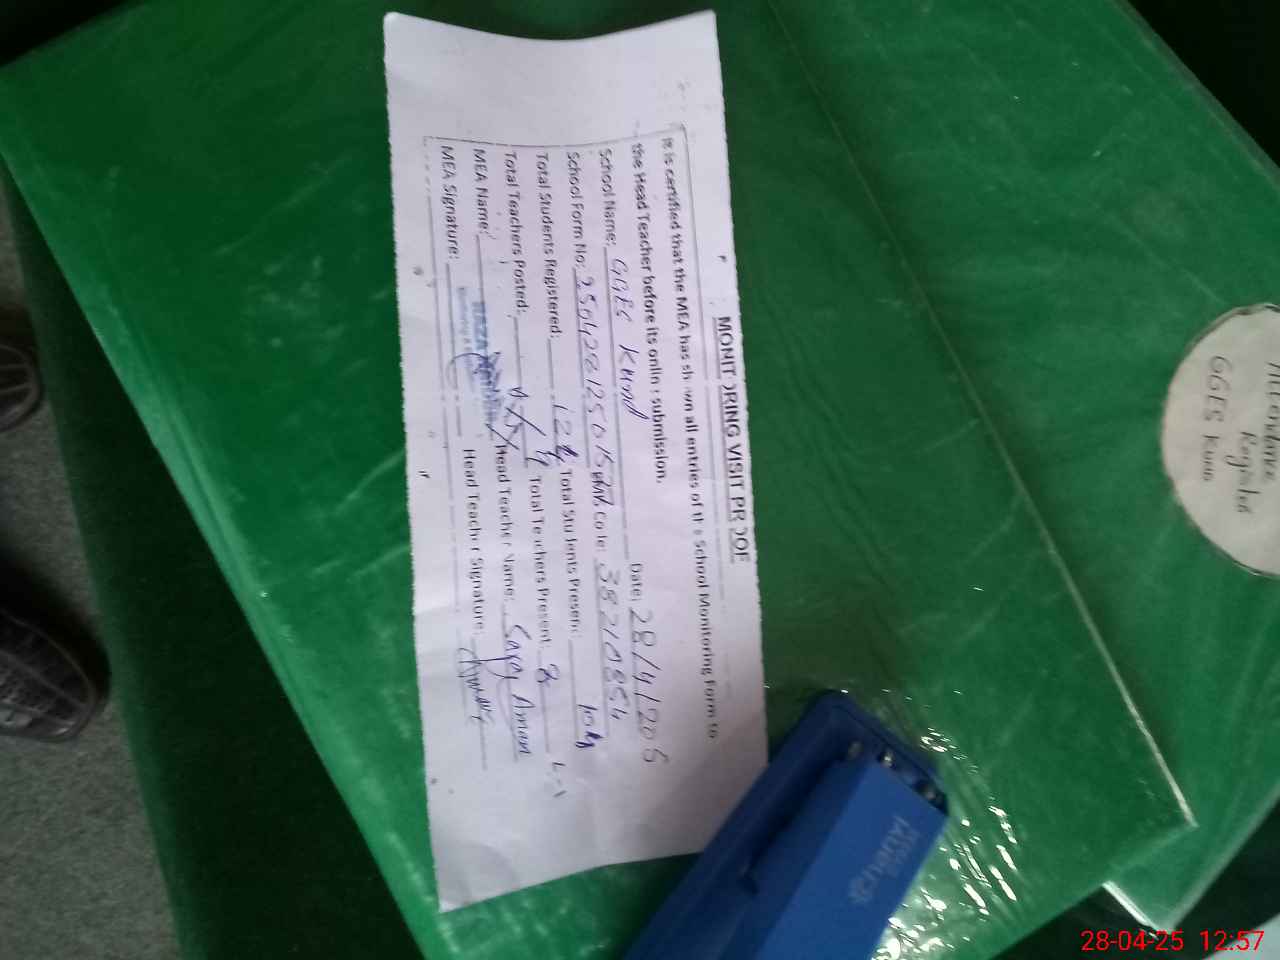 MONITORING VISIT PROOF
It is certified that the MEA has shown all entries of the School Monitoring Form to
the Head Teacher before its online submission.
School Name: GGES Kund Date: 28/4/205
School Form No: 25042812501 Code: 38210854
Total Students Registered: 124 Total Students Present: 104
Total Teachers Posted: 4 Total Teachers Present: L-1
MEA Name: Head Teacher Name: Aman
MEA Signature: Head Teacher Signature:
Attendance
Register
GGES Kund
chanyi
28-04-25 12:57